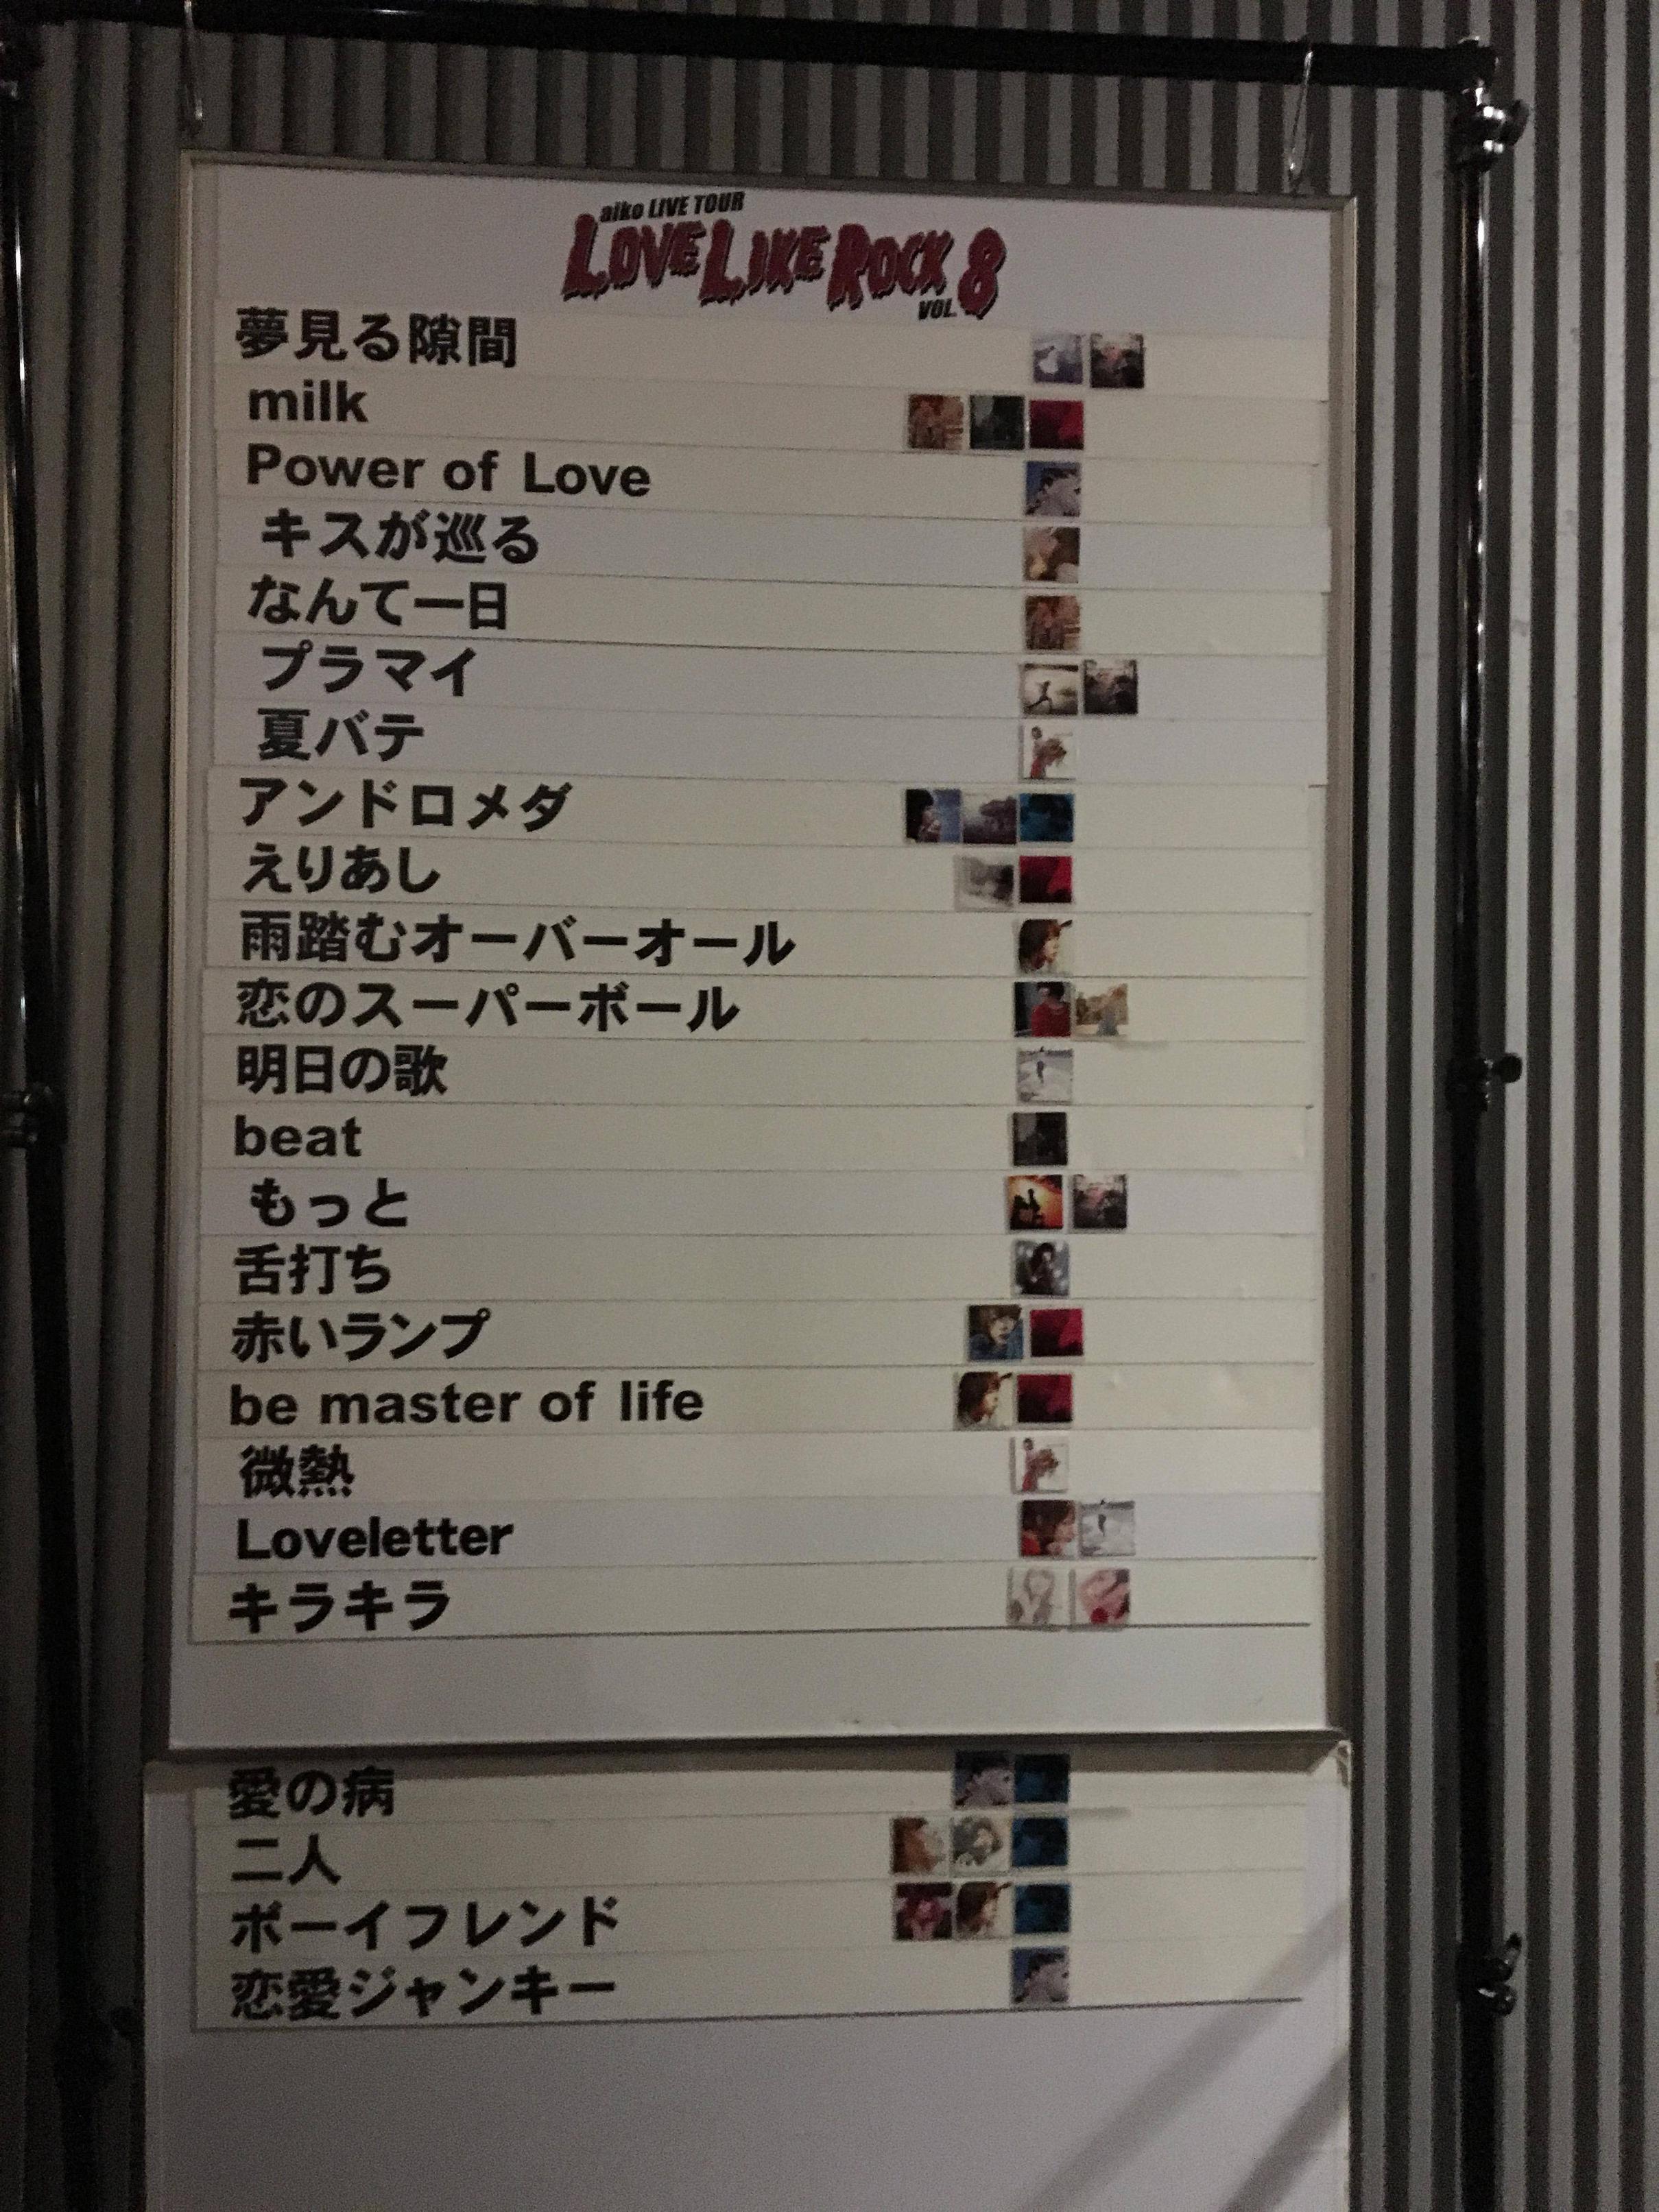 aiko LIVE TOUR
LOVE LIKE ROCK 8
VOL.
夢見る隙間
milk
Power of Love
キスが巡る
なんて一日
プラマイ
夏バテ
アンドロメダ
えりあし
雨踏むオーバーオール
恋のスーパーボール
明日の歌
beat
もっと
舌打ち
赤いランプ
be master of life
微熱
Loveletter
キラキラ
愛の病
二人
ボーイフレンド
恋愛ジャンキー